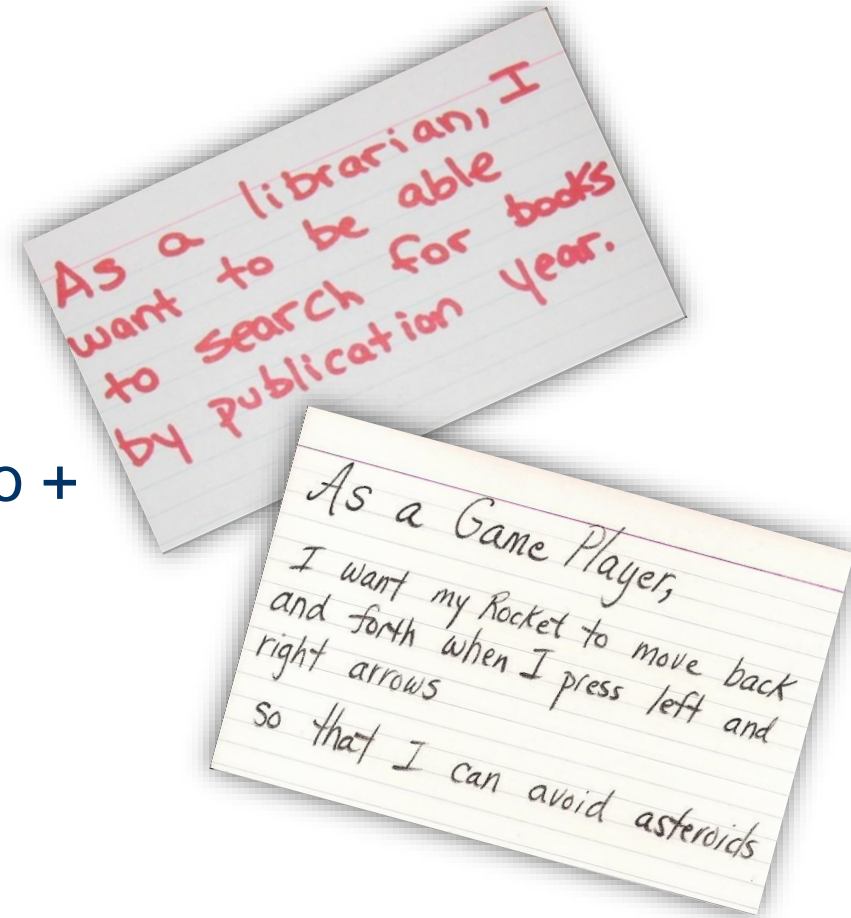 As a librarian, I
want to be able
to search for books
by publication year.
o +
As a Game Player,
I want my Rocket to move back
and forth when I press left and
right arrows
so that I can avoid asteroids